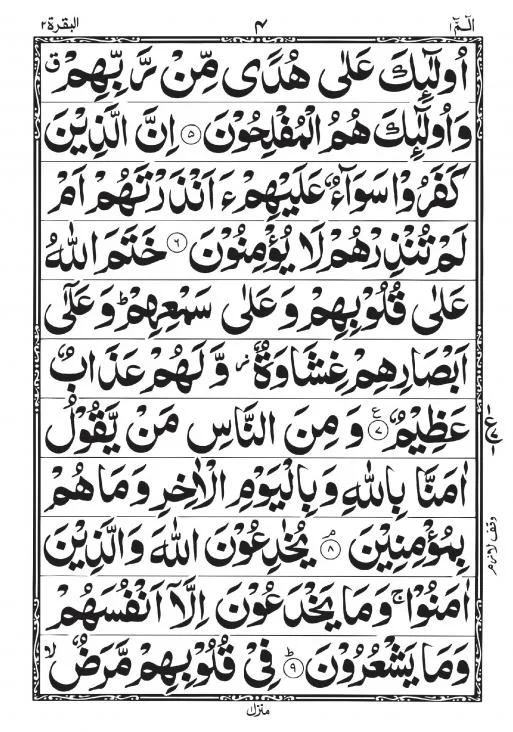 الٓمّٓ ١ ٤ البقرة ٢
اُولٰٓئِكَ عَلٰى هُدًى مِّنْ رَّبِّهِمْ ۙق
وَاُولٰٓئِكَ هُمُ الْمُفْلِحُوْنَ ۝٥ اِنَّ الَّذِيْنَ
كَفَرُوْا سَوَآءٌ عَلَيْهِمْ ءَاَنْذَرْتَهُمْ اَمْ
لَمْ تُنْذِرْهُمْ لَا يُؤْمِنُوْنَ ۝٦ خَتَمَ اللّٰهُ
عَلٰى قُلُوْبِهِمْ وَعَلٰى سَمْعِهِمْ ؕ وَعَلٰٓى
اَبْصَارِهِمْ غِشَاوَةٌ ؗ وَّلَهُمْ عَذَابٌ
عَظِيْمٌ ۝٧ ع وَمِنَ النَّاسِ مَنْ يَّقُوْلُ
اٰمَنَّا بِاللّٰهِ وَبِالْيَوْمِ الْاٰخِرِ وَمَا هُمْ
بِمُؤْمِنِيْنَ ۝٨ۘ يُخٰدِعُوْنَ اللّٰهَ وَالَّذِيْنَ
وقف لازم
اٰمَنُوْا ۚ وَمَا يَخْدَعُوْنَ اِلَّآ اَنْفُسَهُمْ
وَمَا يَشْعُرُوْنَ ۝٩ؕ فِيْ قُلُوْبِهِمْ مَّرَضٌ ۙ
منزل